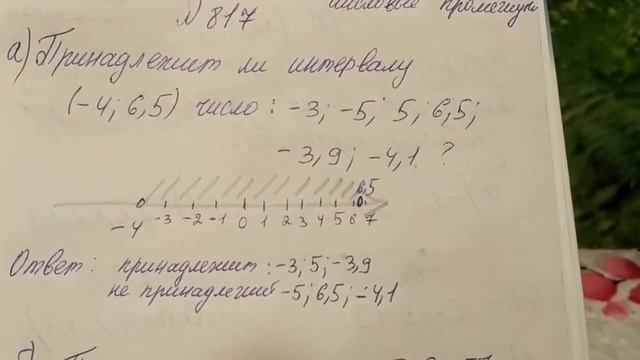 № 817
числовые промежутки
а) Принадлежит ли интервалу
(-4; 6,5) число: -3; -5; 5; 6,5;
-3,9; -4,1 ?
6,5
-4 -3 -2 -1 0 1 2 3 4 5 6 7
Ответ: принадлежит: -3; 5; -3,9
не принадлежит -5; 6,5; -4,1